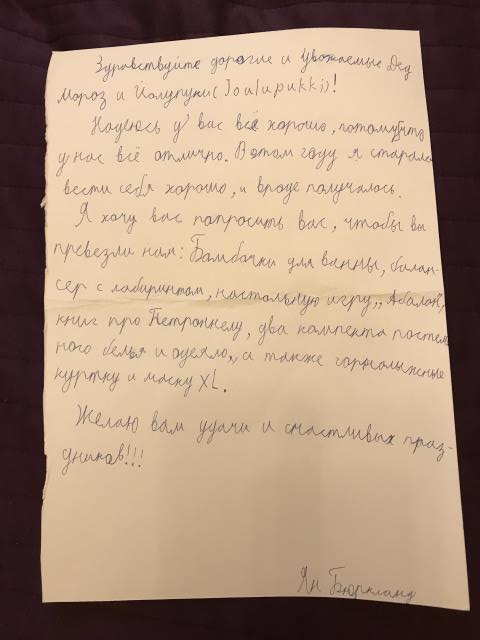 Здравствуйте дорогие и Уважаемые Дед
Мороз и Йолупуки(Joulupukki)!
Надеюсь у вас всё хорошо, потомучто
у нас всё отлично. В этом году я старался
вести себя хорошо, и вроде получалось.
Я хочу вас попросить вас, чтобы вы
превезли нам: Бомбочки для ванны, балан-
сер с лабиринтом, настольную игру „Абалон",
книг про Петронеллу, два компекта постель
ного белья и одеяло, а также горнолыжные
куртку и маску XL.
Желаю вам удачи и счастливых праз-
дников!!!
Ян Бюрклунд